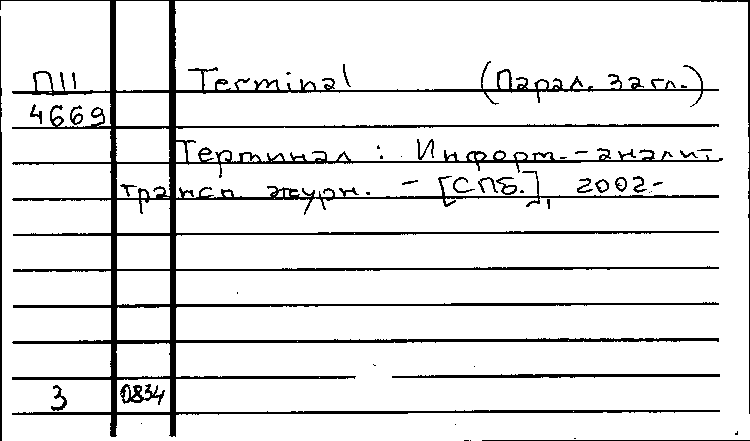 П11 Terminal (Парал. загл.)
4669
Терминал : Информ.-аналит.
трансп. журн. - [СПб.], 2002-
3 0834